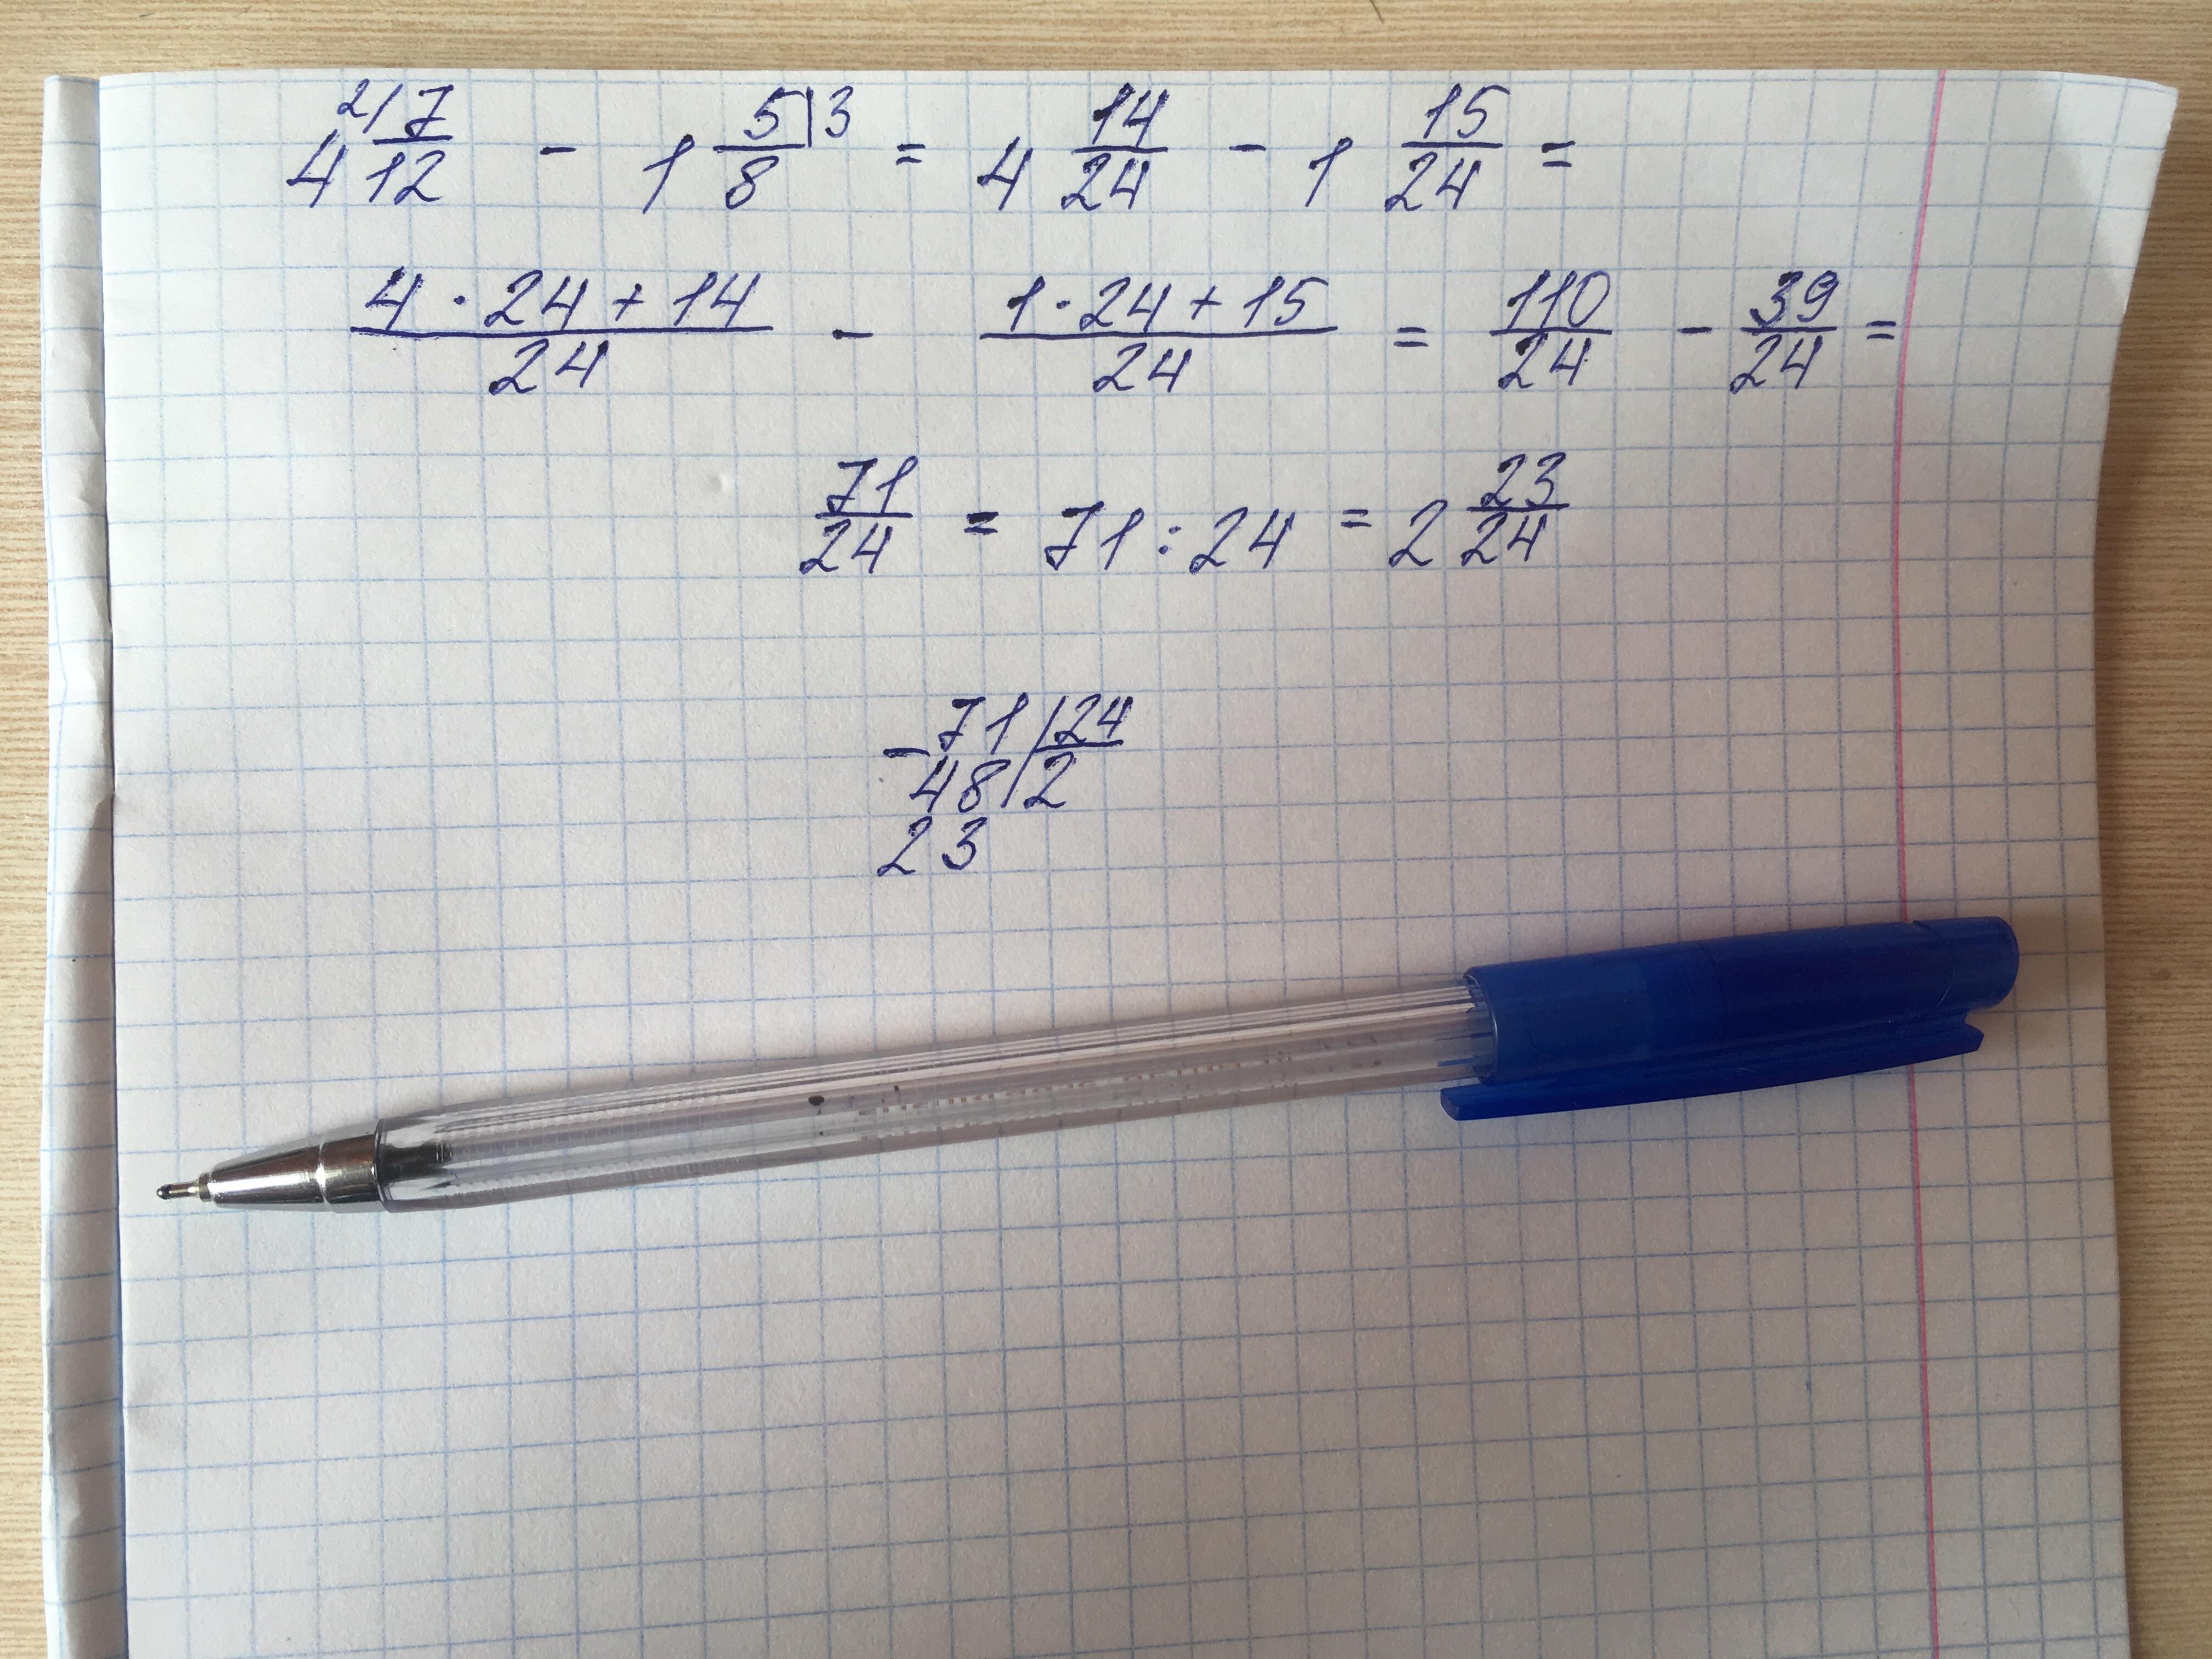 4 2/ 7/12 - 1 5/8 |3 = 4 14/24 - 1 15/24 =
(4 · 24 + 14)/24 - (1 · 24 + 15)/24 = 110/24 - 39/24 =
71/24 = 71 : 24 = 2 23/24
- 71 | 24
48 | 2
23